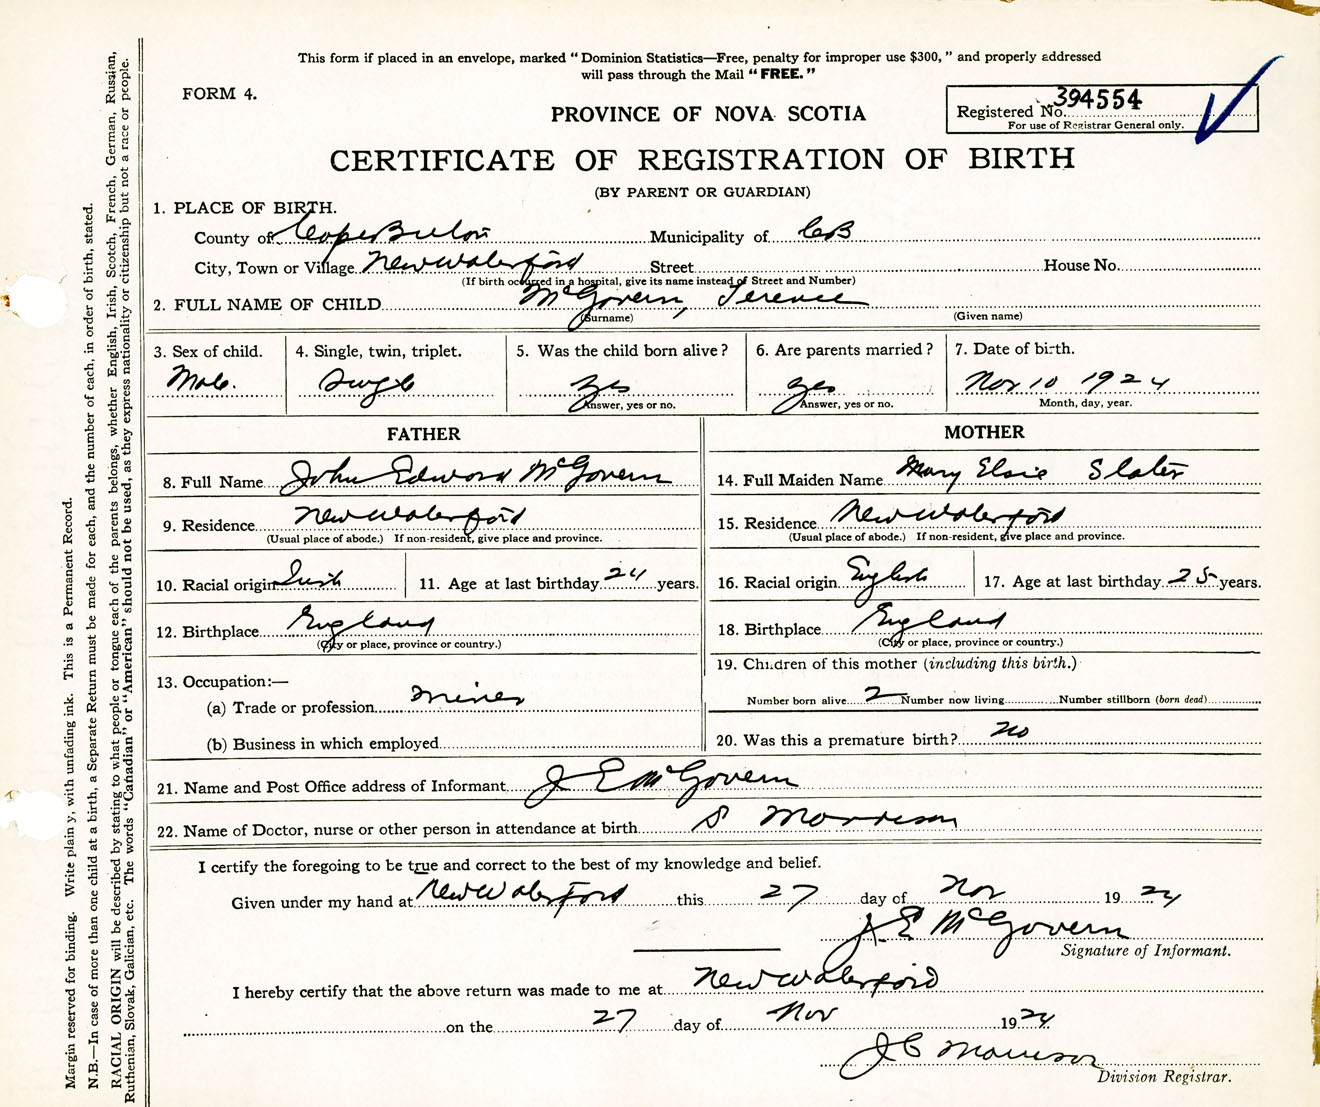 This form if placed in an envelope, marked "Dominion Statistics—Free, penalty for improper use $300," and properly addressed
will pass through the Mail "FREE."
FORM 4.
PROVINCE OF NOVA SCOTIA
Registered No. 394554
For use of Registrar General only.
CERTIFICATE OF REGISTRATION OF BIRTH
(BY PARENT OR GUARDIAN)
1. PLACE OF BIRTH.
County of Cape Breton Municipality of CB
City, Town or Village New Waterford Street House No.
(If birth occurred in a hospital, give its name instead of Street and Number)
2. FULL NAME OF CHILD McGovern, Terence
(Surname) (Given name)
3. Sex of child. 4. Single, twin, triplet. 5. Was the child born alive? 6. Are parents married? 7. Date of birth.
Male. Single yes yes Nov 10 1924
Answer, yes or no. Answer, yes or no. Month, day, year.
FATHER MOTHER
8. Full Name John Edward McGovern 14. Full Maiden Name Mary Elsie Slater
9. Residence New Waterford 15. Residence New Waterford
(Usual place of abode.) If non-resident, give place and province. (Usual place of abode.) If non-resident, give place and province.
10. Racial origin Irish 11. Age at last birthday 24 years. 16. Racial origin English 17. Age at last birthday 25 years.
12. Birthplace England 18. Birthplace England
(City or place, province or country.) (City or place, province or country.)
19. Children of this mother (including this birth.)
13. Occupation:—
(a) Trade or profession miner Number born alive 2 Number now living Number stillborn (born dead)
(b) Business in which employed 20. Was this a premature birth? no
21. Name and Post Office address of Informant J E McGovern
22. Name of Doctor, nurse or other person in attendance at birth S Morrison
I certify the foregoing to be true and correct to the best of my knowledge and belief.
Given under my hand at New Waterford this 27 day of Nov 1924
J E McGovern
Signature of Informant.
I hereby certify that the above return was made to me at New Waterford
on the 27 day of Nov 1924
J C Morrison
Division Registrar.
Margin reserved for binding. Write plainly, with unfading ink. This is a Permanent Record.
N.B.—In case of more than one child at a birth, a Separate Return must be made for each, and the number of each, in order of birth, stated.
RACIAL ORIGIN will be described by stating to what people or tongue each of the parents belongs, whether English, Irish, Scotch, French, German, Russian,
Ruthenian, Slovak, Galician, etc. The words "Canadian" or "American" should not be used, as they express nationality or citizenship but not a race or people.